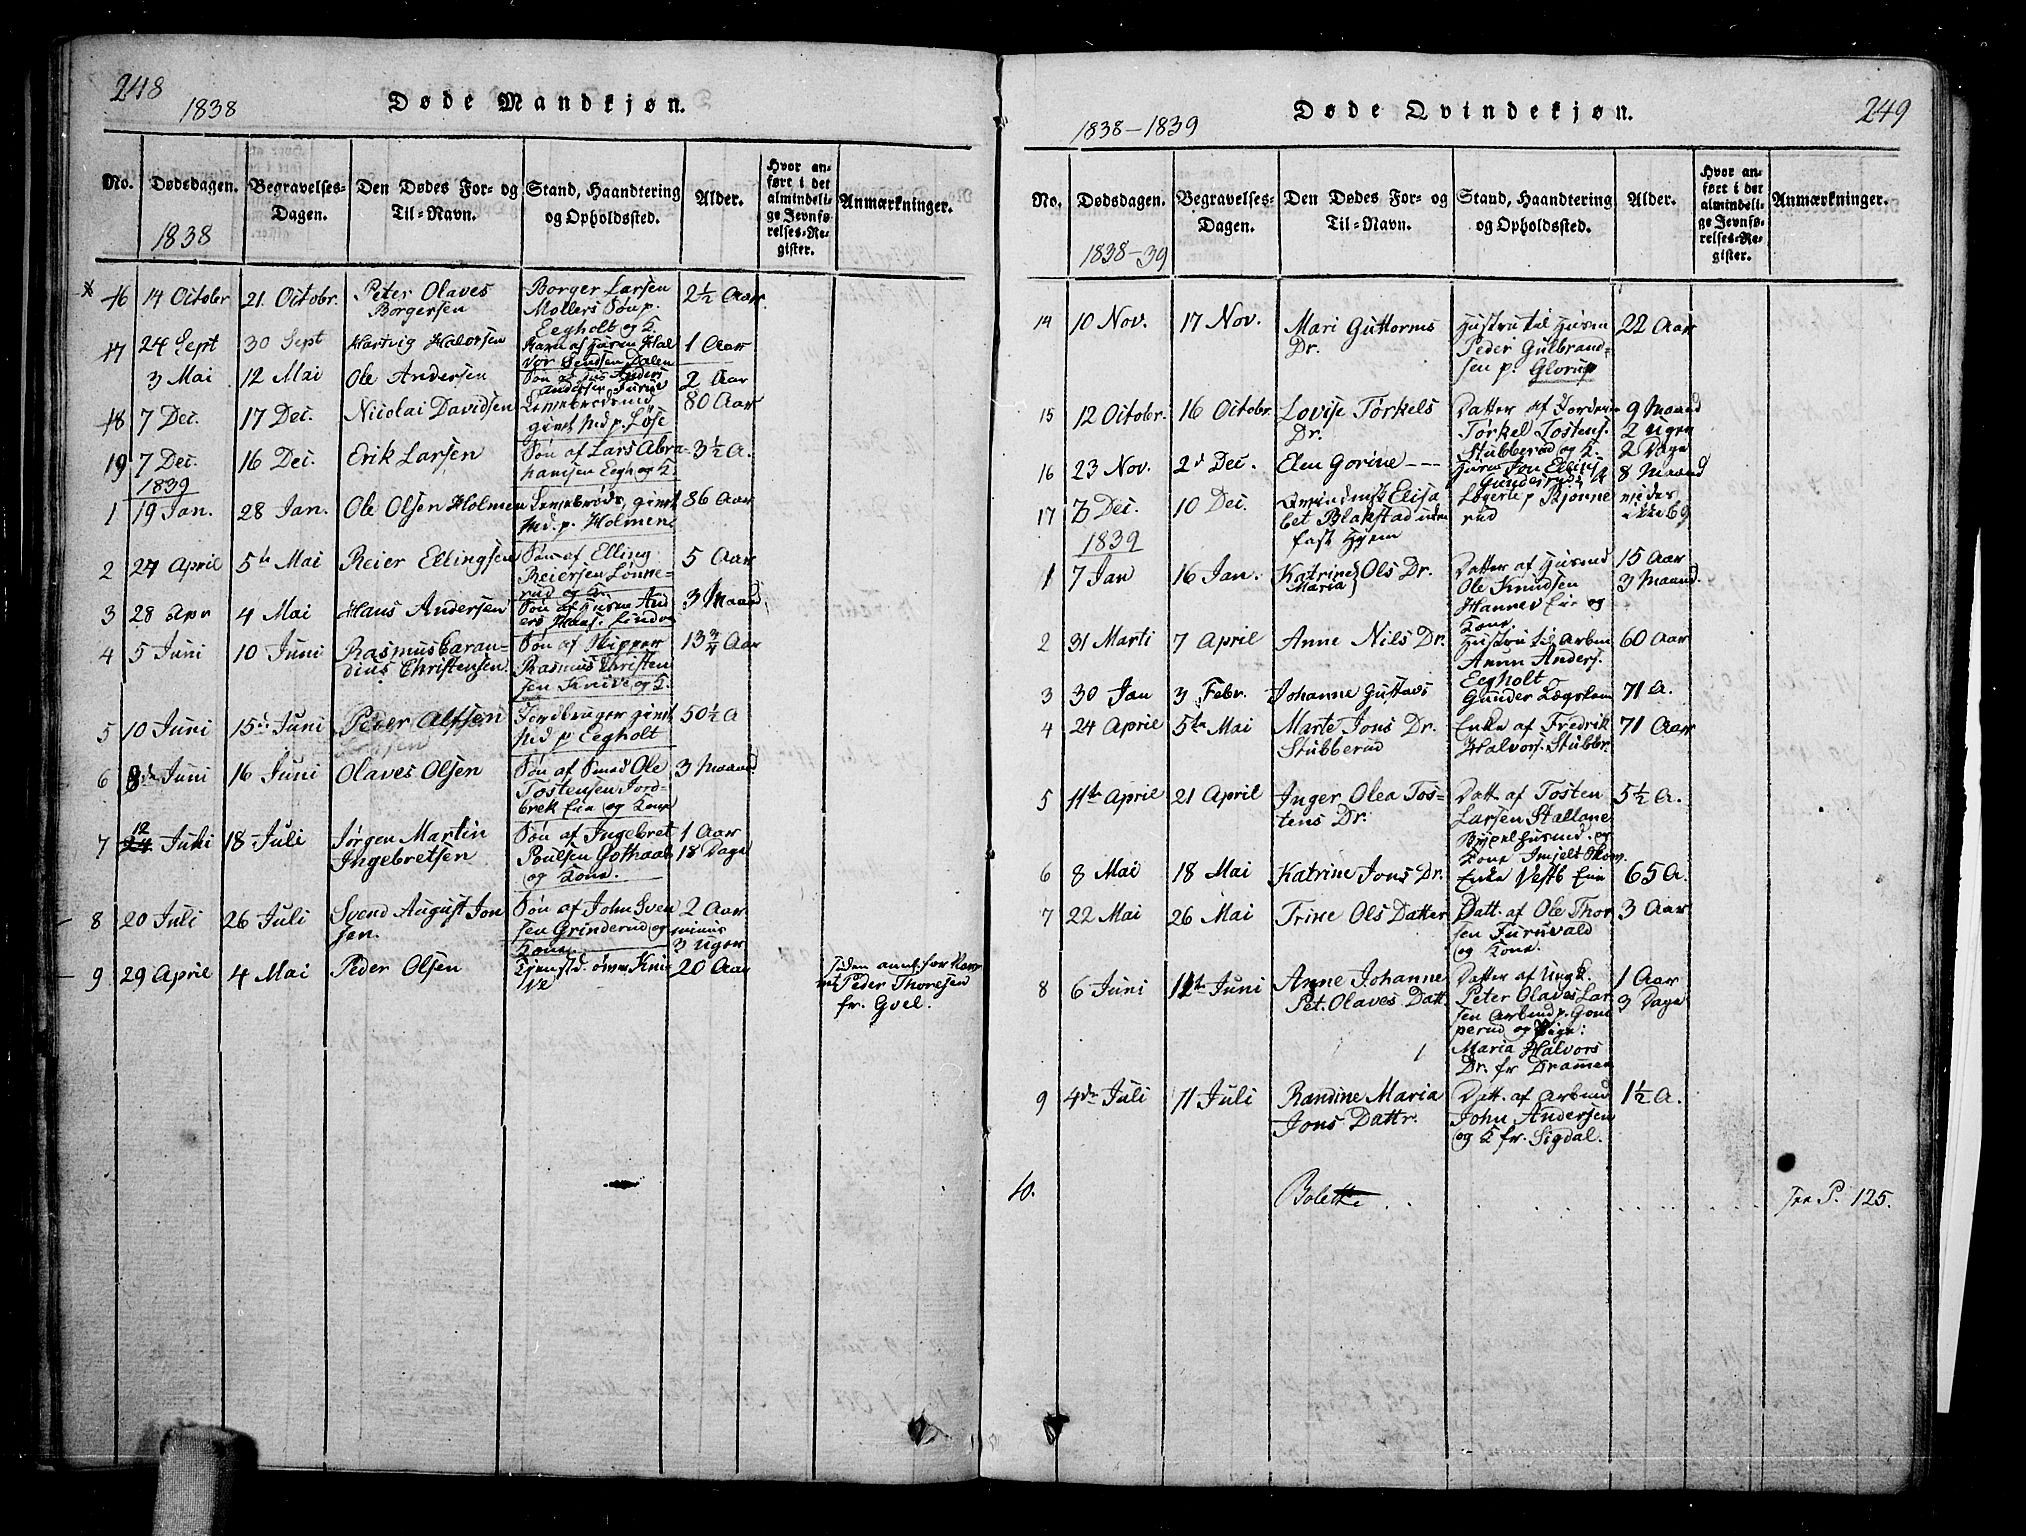 248
1838
Døde Mandkjøn.
No.
Dødsdagen.
Begravelses-
Dagen.
Den Dødes For- og
Til-Navn.
Stand, Haandtering
og Opholdssted.
Alder.
Hvor an-
ført i det
almindeli-
ge Jevnfø-
relses-Re-
gister.
Anmærkninger.
1838
16 14 Octobr 21. Octobr. Peter Olaves
Borgersen
Borger Larsen
Mollers Søn p.
Eegholt og K.
2½ Aar
17 24 Sept 30 Sept Hartvig Halvorsen
Barn af Husm Hal
vor Dalen
1 Aar
3 Mai 12 Mai Ole Andersen
Søn af Hus Anders
Andersen
2 Aar
18 7 Dec. 17 Dec. Nicolai Davidsen
givt Md p. Løse
80 Aar
19 7 Dec. 16 Dec. Erik Larsen
Søn af Lars Abra-
hamsen Eegh og K.
3½ A.
1839
1 19 Jan. 28 Jan. Ole Olsen Holmen
givt
Md. p. Holmen
86 Aar
2 27 April 5te Mai Reier Ellingsen
Søn af Elling
Reiersen Lønne-
rud og
5 Aar
3 28 Apr 4 Mai Hans Andersen
Søn af Husm And
ers Hans.
3 Maand
4 5 Juni 10 Juni Rasmus Baran-
dius Christensen
Søn af Skipper
Rasmus Christen
sen Knive og K.
13¾ Aar
5 10 Juni 15de Juni Peder Alfsen
Jordbruger givt
Md p Eegholt
50½ A
6 8de Juni 16 Juni Olaves Olsen
Søn af Smed Ole
Tostensen Jord-
brek Eie og Kone
3 Maand
7 12 Juli 18 Juli Jørgen Martin
Ingebretsen
Søn af Ingebret
Poulsen Gothaab
og Kone.
1 Aar
18 Dage
8 20 Juli 26 Juli Svend August Jon
sen.
Søn af John Sven
sen Grinderud og
Kone
2 Aar
minus
3 Uger
9 29 April 4 Mai Peder Olsen
Tjenstd. Kni-
ve
20 Aar
Peder Thoresen
fr. Gvel.
249
Døde Qvindekjøn.
1838-1839
No.
Dødsdagen.
Begravelses-
Dagen.
Den Dødes For- og
Til-Navn.
Stand, Haandtering
og Opholdssted.
Alder.
Hvor an-
ført i det
almindeli-
ge Jevnfø-
relses-Re-
gister.
Anmærkninger.
1838-39
14 10 Nov. 17 Nov. Mari Guttorms
Dr.
Hustru til Husm
Peder Gulbrand-
sen p. Glorup
22 Aar
15 12 Octobr. 16 Octobr. Lovise Torkels
Dr.
Datter af
Torkel Tostens.
Stubberud og K.
9 Maand
2 Uger
2 Dage
16 23 Nov. 2d Dec. Elen Gorine
Husm Jon Ellings
8 Maand
17 7 Dec. 10 Dec. Elisa
bet Blakstad uden
fast Hjem
Bjønne
rud
1839
1 7 Jan 16 Jan. Katrine Ols Dr.
Maria
Datter af Husmd
Ole Knudsen
Hannev Eie og
Kone
15 Aar
3 Maand.
2 31 Marti 7 April Anne Nils Dr.
Hustru til Arbm
Amun Anders.
Eegholt
60 Aar
3 30 Jan 3 Febr. Johanne Gustavs
Gunder
71 A.
4 24 April 5te Mai Marte Jons Dr.
Stubberud
Enke af Fredrik
Halvors. Stubbr.
71 Aar
5 11te April 21 April Inger Olea Tos-
tens Dr.
Datt. af Tosten
Larsen Stallane
Husmd. og
Kone
5½ A.
6 8 Mai 18 Mai Katrine Jons Dr.
Enke Vestb Eie
65 A.
7 22 Mai 26 Mai Trine Ols Datter
Datt. af Ole Thor
sen Furuvald
og Kone
3 Aar
8 6 Juni Juni Anne Johanne
Pet. Olaves Datt.
Datter af Ungk.
Peter Olaves Lar
sen Arbmd p. Gom
perud og Pige:
Maria Halvors
Dr. fr Dramen
1 Aar
3 Dage
9 4de Juli 11 Juli Randine Maria
Jons Dattr.
Datt. af Arbmd
John Andersen
og K fr. Sigdal.
1½ A.
10. Bolette P. 125.